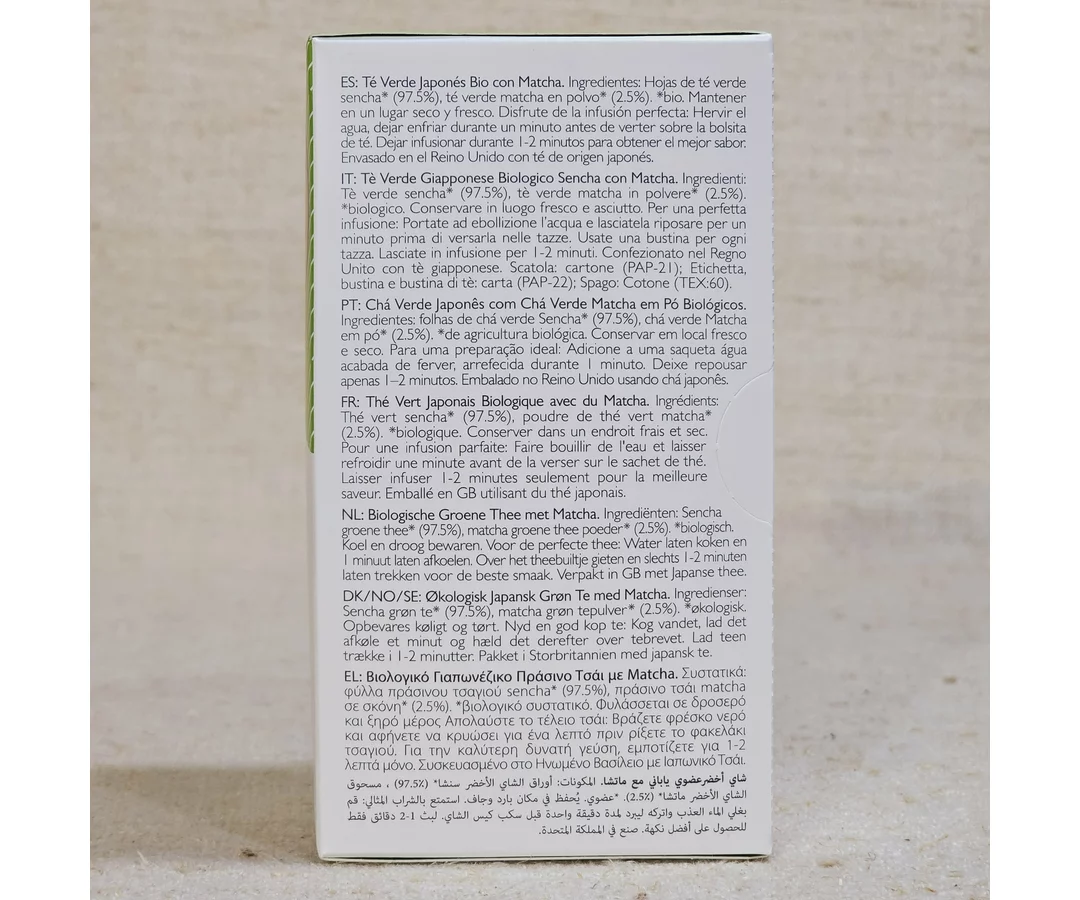 ES: Té Verde Japonés Bio con Matcha. Ingredientes: Hojas de té verde
sencha* (97.5%), té verde matcha en polvo* (2.5%). *bio. Mantener
en un lugar seco y fresco. Disfrute de la infusión perfecta: Hervir el
agua, dejar enfriar durante un minuto antes de verter sobre la bolsita
de té. Dejar infusionar durante 1-2 minutos para obtener el mejor sabor.
Envasado en el Reino Unido con té de origen japonés.
IT: Tè Verde Giapponese Biologico Sencha con Matcha. Ingredienti:
Tè verde sencha* (97.5%), tè verde matcha in polvere* (2.5%).
*biologico. Conservare in luogo fresco e asciutto. Per una perfetta
infusione: Portate ad ebollizione l'acqua e lasciatela riposare per un
minuto prima di versarla nelle tazze. Usate una bustina per ogni
tazza. Lasciate in infusione per 1-2 minuti. Confezionato nel Regno
Unito con tè giapponese. Scatola: cartone (PAP-21); Etichetta,
bustina e bustina di tè: carta (PAP-22); Spago: Cotone (TEX:60).
PT: Chá Verde Japonês com Chá Verde Matcha em Pó Biológicos.
Ingredientes: folhas de chá verde Sencha* (97.5%), chá verde Matcha
em pó* (2.5%). *de agricultura biológica. Conservar em local fresco
e seco. Para uma preparação ideal: Adicione a uma saqueta água
acabada de ferver, arrefecida durante 1 minuto. Deixe repousar
apenas 1–2 minutos. Embalado no Reino Unido usando chá japonês.
FR: Thé Vert Japonais Biologique avec du Matcha. Ingrédients:
Thé vert sencha* (97.5%), poudre de thé vert matcha*
(2.5%). *biologique. Conserver dans un endroit frais et sec.
Pour une infusion parfaite: Faire bouillir de l'eau et laisser
refroidir une minute avant de la verser sur le sachet de thé.
Laisser infuser 1-2 minutes seulement pour la meilleure
saveur. Emballé en GB utilisant du thé japonais.
NL: Biologische Groene Thee met Matcha. Ingrediënten: Sencha
groene thee* (97.5%), matcha groene thee poeder* (2.5%). *biologisch.
Koel en droog bewaren. Voor de perfecte thee: Water laten koken en
1 minuut laten afkoelen. Over het theebuiltje gieten en slechts 1-2 minuten
laten trekken voor de beste smaak. Verpakt in GB met Japanse thee.
DK/NO/SE: Økologisk Japansk Grøn Te med Matcha. Ingredienser:
Sencha grøn te* (97.5%), matcha grøn tepulver* (2.5%). *økologisk.
Opbevares køligt og tørt. Nyd en god kop te: Kog vandet, lad det
afkøle et minut og hæld det derefter over tebrevet. Lad teen
trække i 1-2 minutter. Pakket i Storbritannien med japansk te.
EL: Βιολογικό Γιαπωνέζικο Πράσινο Τσάι με Matcha. Συστατικά:
φύλλα πράσινου τσαγιού sencha* (97.5%), πράσινο τσάι matcha
σε σκόνη* (2.5%). *βιολογικό συστατικό. Φυλάσσεται σε δροσερό
και ξηρό μέρος Απολαύστε το τέλειο τσάι: Βράζετε φρέσκο νερό
και αφήνετε να κρυώσει για ένα λεπτό πριν ρίξετε το φακελάκι
τσαγιού. Για την καλύτερη δυνατή γεύση, εμποτίζετε για 1-2
λεπτά μόνο. Συσκευασμένο στο Ηνωμένο Βασίλειο με Ιαπωνικό Τσάι.
شاي أخضرعضوي ياباني مع ماتشا. المكونات: أوراق الشاي الأخضر سنشا* (97.5٪) ، مسحوق
الشاي الأخضر ماتشا* (2.5٪). *عضوي. يُحفظ في مكان بارد وجاف. استمتع بالشراب المثالي: قم
بغلي الماء العذب واتركه ليبرد لمدة دقيقة واحدة قبل سكب كيس الشاي. لبث 1-2 دقائق فقط
للحصول على أفضل نكهة. صنع في المملكة المتحدة.